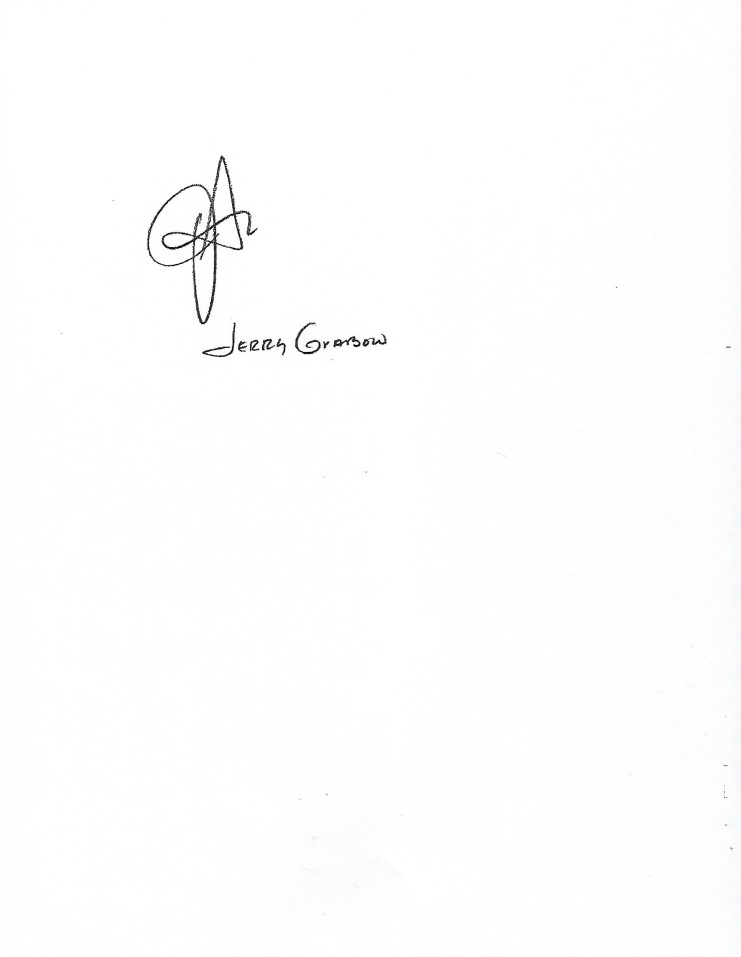 Jerry Grabow